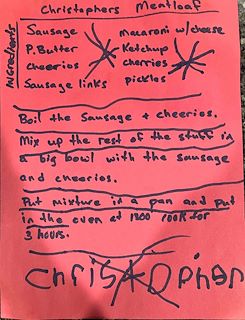 Christophers Meatloaf
Ingredients
Sausage
P. Butter
cheerios
Sausage links
Macaroni w/cheese
Ketchup
cherries
pickles
Boil the Sausage + cheerios.
Mix up the rest of the stuff in
a big bowl with the sausage
and cheerios.
Put mixture in a pan and put
in the oven at 1200 cook for
3 hours.
Christopher